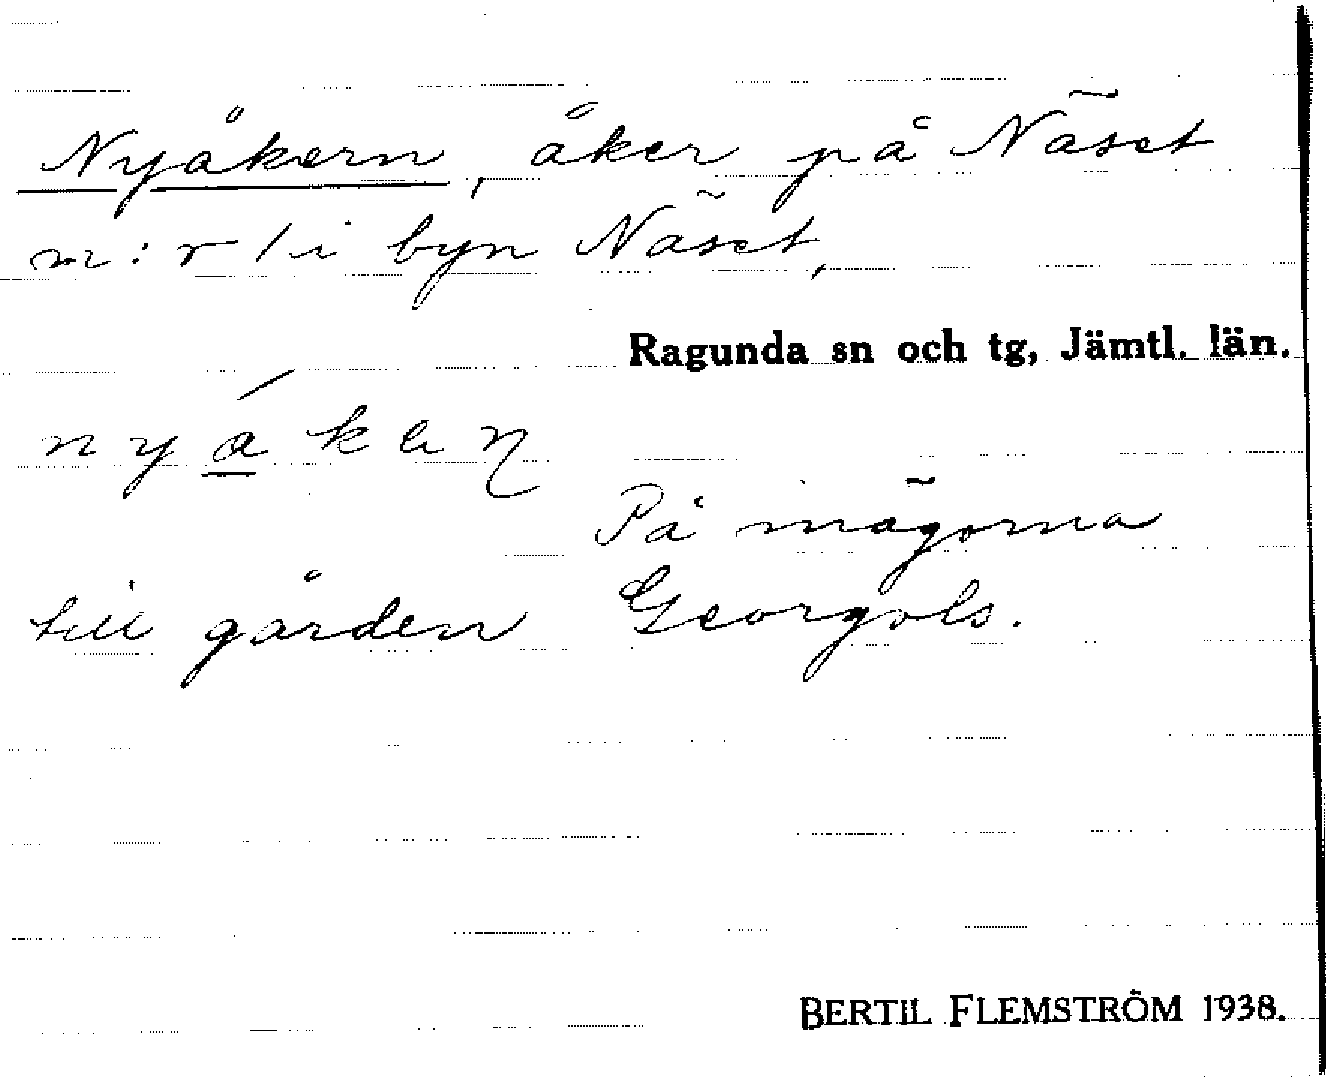 Nyåkern, åker på Näset
m:r 1 i byn Näset,
Ragunda sn och tg, Jämtl. län.
På inägorna
till gården Georgols.
BERTIL FLEMSTRÖM 1938.